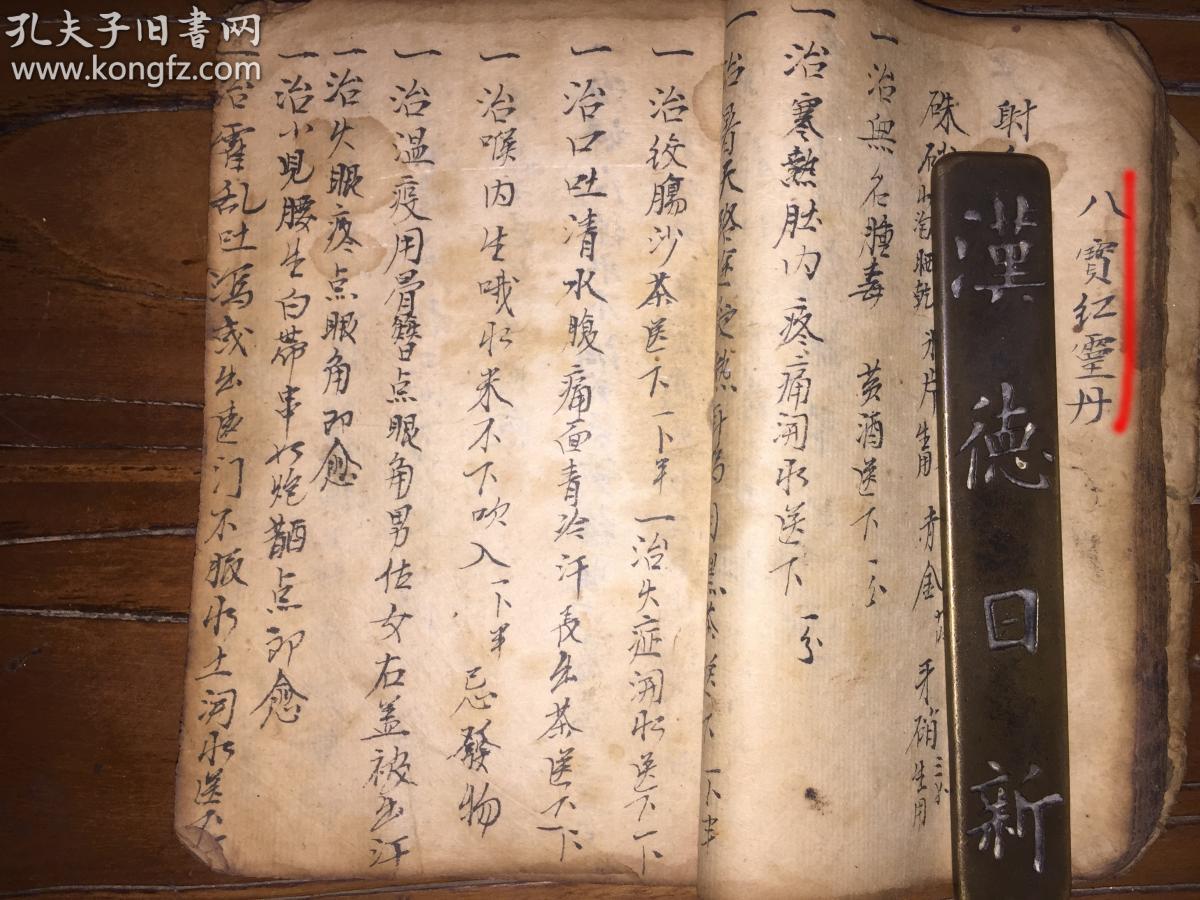 孔夫子旧书网
www.kongfz.com
八寶紅靈丹
射
硃 水淘晒乾 氷片生用 青金 牙硝三分生用
一治無名腫毒 黄酒送下一分
一治寒熱肚内疼痛開水送下一分
一治絞腸沙茶送下一下半 一治失症開水送下一下
一治口吐清水腹痛面青冷汗表出茶送下一下
一治喉内生哦水米不下吹入一下半 忌發物
一治温疫用骨簪点眼角男佐女右盖被出汗
一治失眼疼点眼角即愈
一治小児腰生白帶串如炮 点即愈
一治霍乱吐瀉或出速门不服水土開水送下
漢德日新